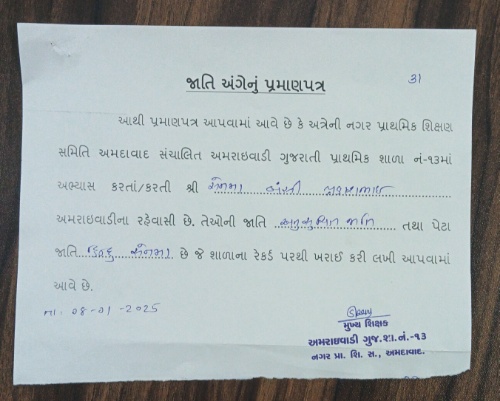 જાતિ અંગેનું પ્રમાણપત્ર
31
આથી પ્રમાણપત્ર આપવામાં આવે છે કે અત્રેની નગર પ્રાથમિક શિક્ષણ
સમિતિ અમદાવાદ સંચાલિત અમરાઇવાડી ગુજરાતી પ્રાથમિક શાળા નં-૧૩માં
અભ્યાસ કરતાં/કરતી શ્રી સેનમા બંસી
અમરાઇવાડીના રહેવાસી છે. તેઓની જાતિ અનુસુચિત જાતિ તથા પેટા
જાતિ હિન્દુ સેનમા છે જે શાળાના રેકર્ડ પરથી ખરાઈ કરી લખી આપવામાં
આવે છે.
તા: 08-01-2025
મુખ્ય શિક્ષક
અમરાઇવાડી ગુજ.શા.નં.-૧૩
નગર પ્રા. શિ. સ., અમદાવાદ.